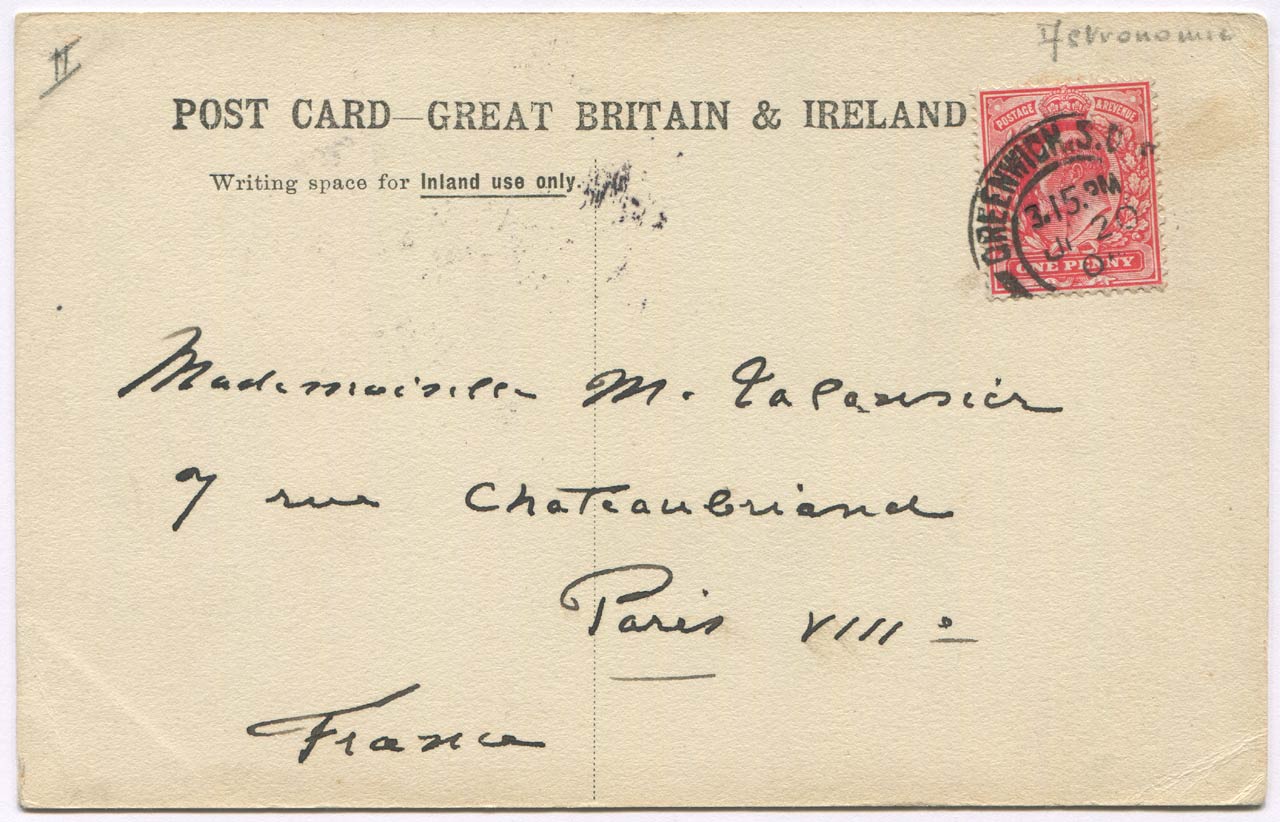 II
Astronomie
POST CARD—GREAT BRITAIN & IRELAND
Writing space for Inland use only.
POSTAGE & REVENUE
GREENWICH. S.O
3.15.PM
20
ONE PENNY
Mademoiselle M.
7 rue Chateaubriand
Paris VIIIe
France